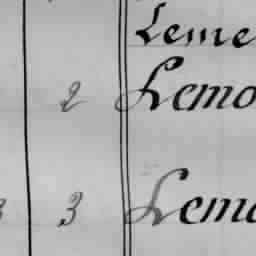 Leme
2 Lemo
3 Lemo